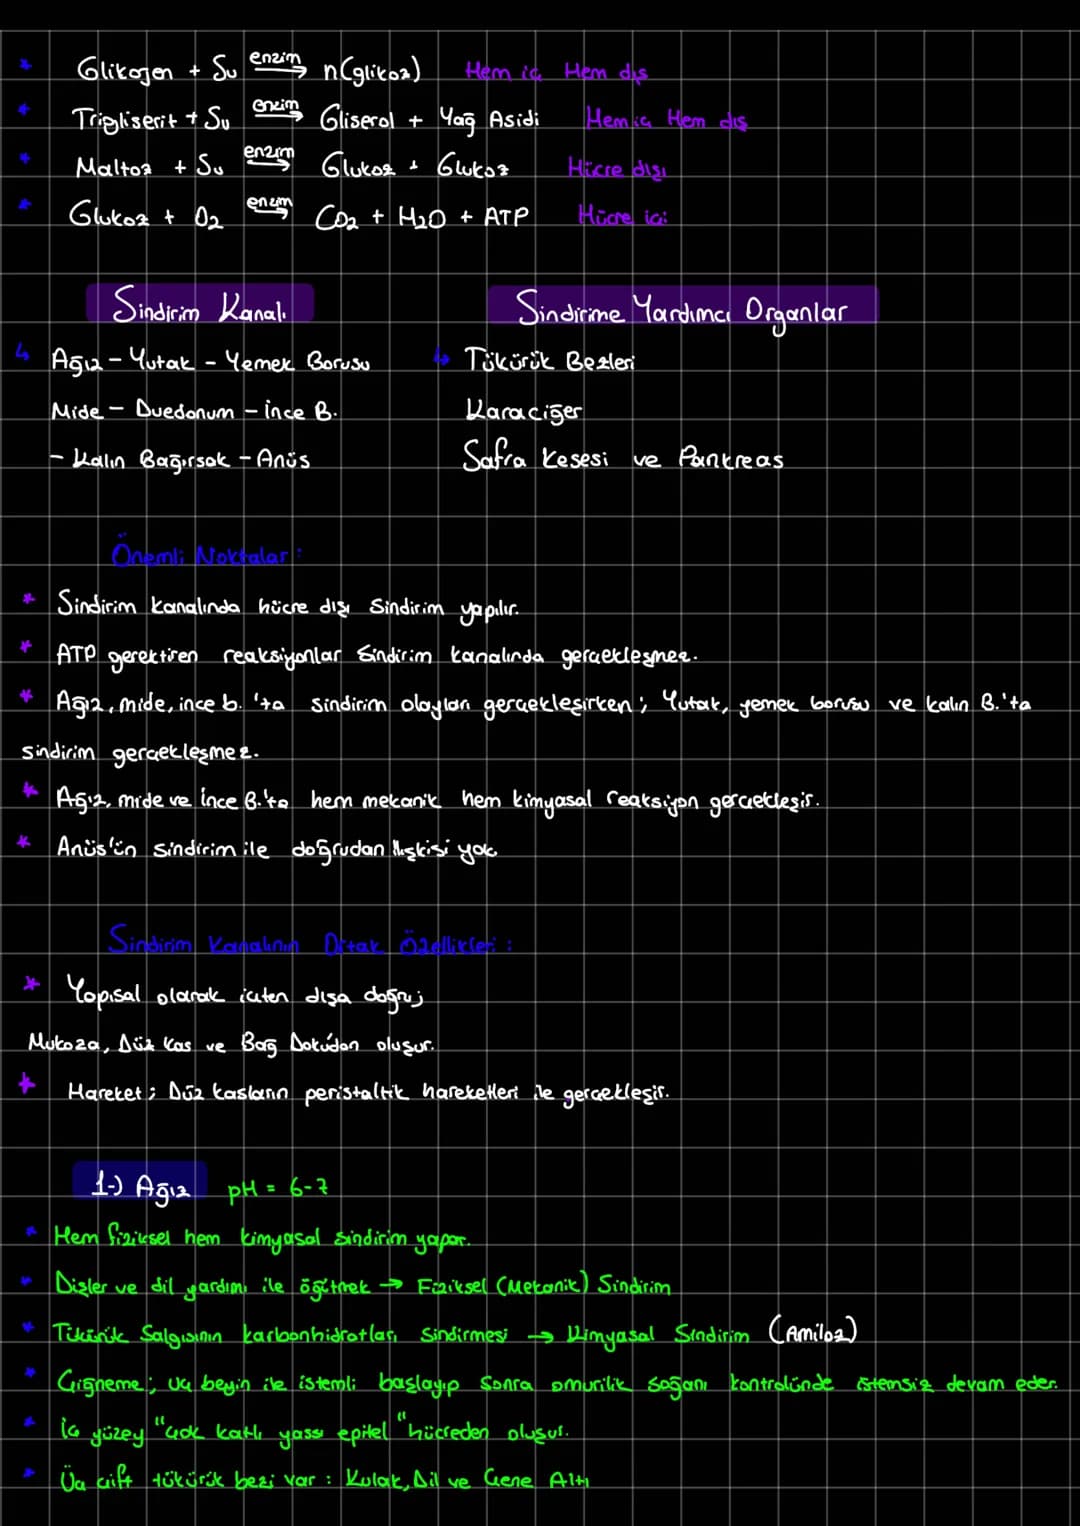 * Glikojen + Su enzim→ n(glikoz) Hem iç Hem dış
* Trigliserit + Su enzim→ Gliserol + Yağ Asidi Hem iç Hem dış
* Maltoz + Su enzim→ Glukoz + Glukoz Hücre dışı
* Glukoz + O₂ enzim→ CO₂ + H₂O + ATP Hücre içi
Sindirim Kanalı
↳ Ağız - Yutak - Yemek Borusu
Mide - Duedonum - İnce B.
- Kalın Bağırsak - Anüs
Sindirime Yardımcı Organlar
↳ Tükürük Bezleri
Karaciğer
Safra Kesesi ve Pankreas
Önemli Noktalar:
* Sindirim kanalında hücre dışı sindirim yapılır.
* ATP gerektiren reaksiyonlar Sindirim kanalında gerçekleşmez.
* Ağız, mide, ince b.'ta sindirim olayları gerçekleşirken; Yutak, yemek borusu ve kalın B.'ta
sindirim gerçekleşmez.
* Ağız, mide ve İnce B.'ta hem mekanik hem kimyasal reaksiyon gerçekleşir.
* Anüs'ün sindirim ile doğrudan ilişkisi yok
Sindirim Kanalının Ortak Özellikleri:
* Yapısal olarak içten dışa doğru;
Mukoza, Düz kas ve Bağ Doku'dan oluşur.
* Hareket; Düz kasların peristaltik hareketleri ile gerçekleşir.
1-) Ağız pH = 6-7
* Hem fiziksel hem kimyasal sindirim yapar.
* Dişler ve dil yardımı ile öğütmek → Fiziksel (Mekanik) Sindirim
* Tükürük Salgısının karbonhidratları sindirmesi → Kimyasal Sindirim (Amilaz)
* Çiğneme; uç beyin ile istemli başlayıp sonra omurilik soğanı kontrolünde istemsiz devam eder.
* İç yüzey "çok katlı yassı epitel" hücreden oluşur.
* Üç çift tükürük bezi var : Kulak, Dil ve Çene Altı